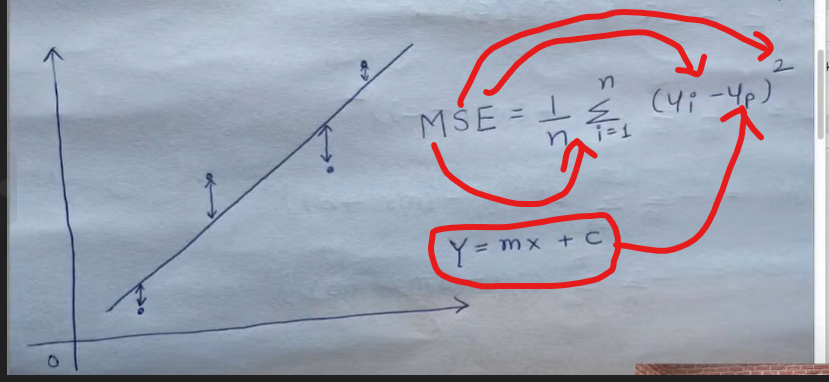 MSE = 1/n n∑i=1 (yi - yp)2
Y = mx + c
0